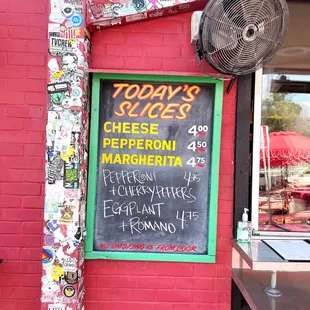 TODAY'S
SLICES
CHEESE 4.00
PEPPERONI 4.50
MARGHERITA 4.75
PEPPERONI 4.75
+ CHERRY PEPPERS
EGGPLANT 4.75
+ ROMANO
NO SMOKING 15' FROM DOOR